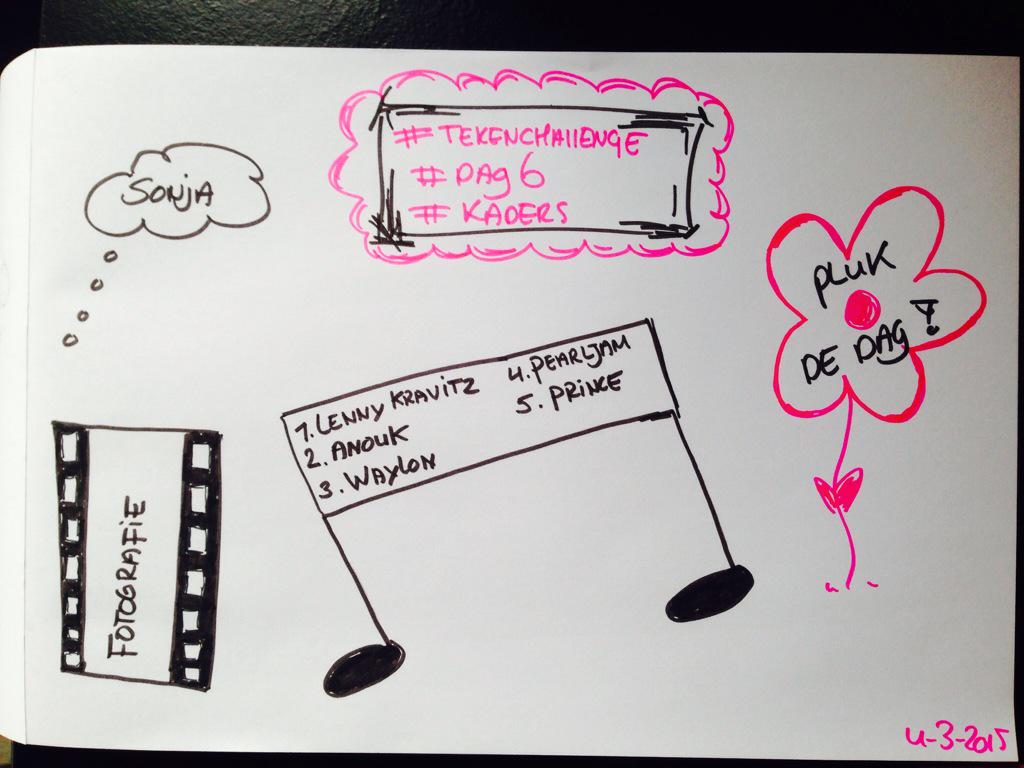 # TEKENCHALLENGE
# DAG 6
# KADERS
SONJA
PLUK
DE DAG!
1. LENNY KRAVITZ
2. ANOUK
3. WAYLON
4. PEARLJAM
5. PRINCE
FOTOGRAFIE
4-3-2015